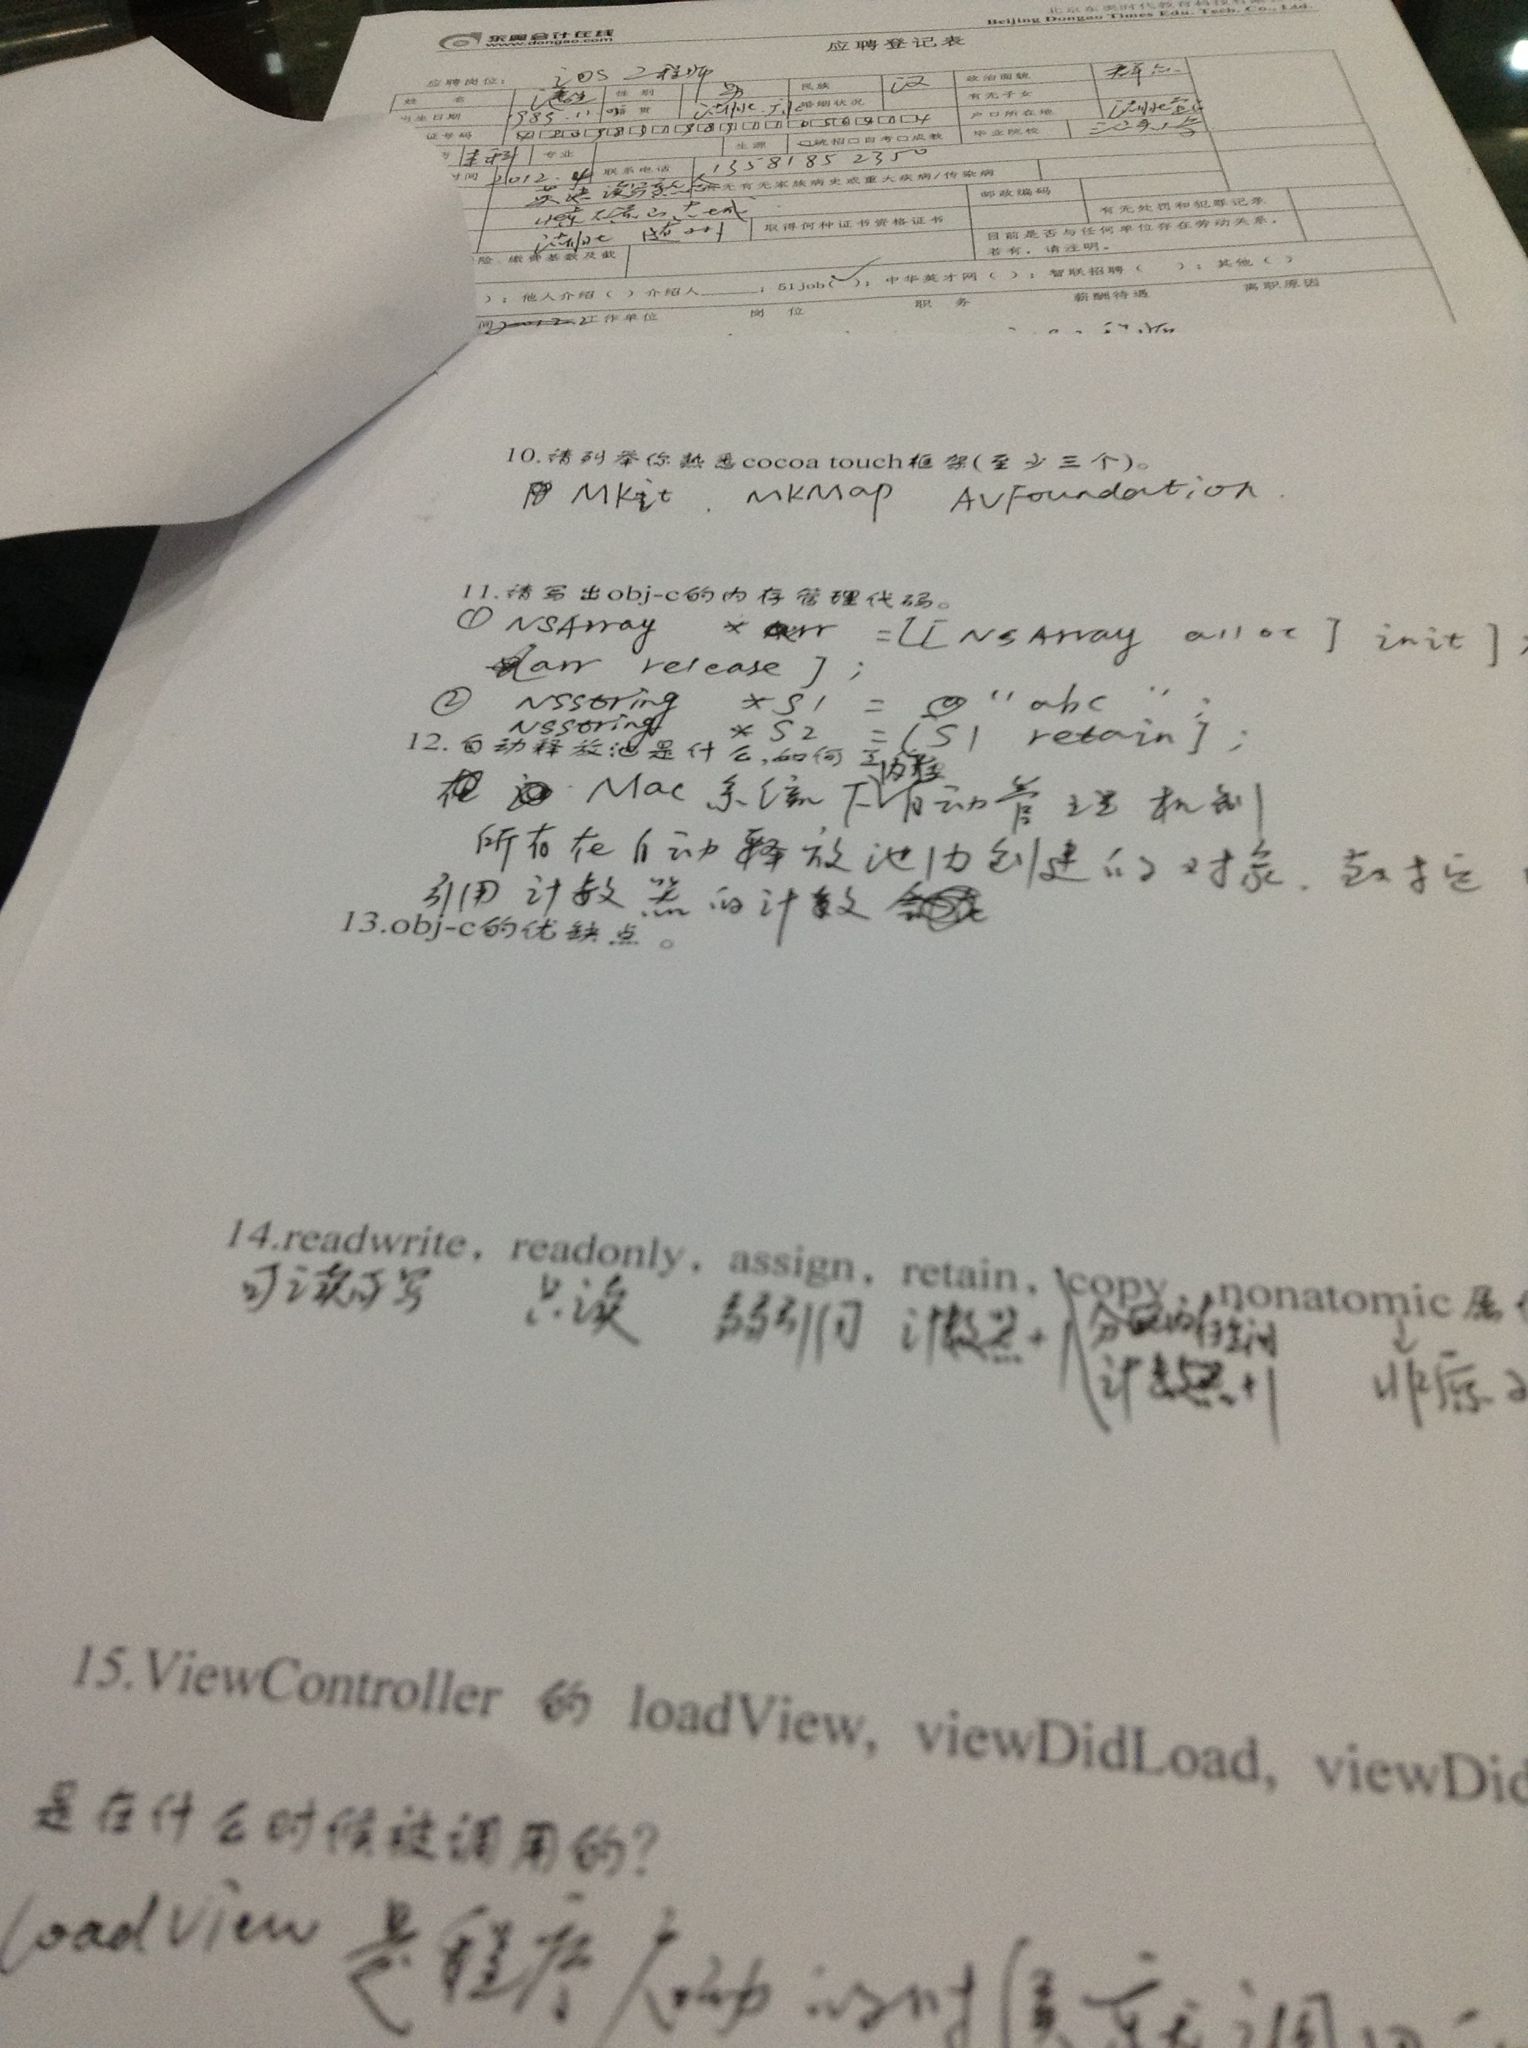 北京东奥时代教育科技有限
Beijing Dongao Times Edu. Tech. Co., Ltd.
东奥会计在线
www.dongao.com
应聘登记表
应聘岗位: iOS工程师
姓 名 性 别 男 民族 汉 政治面貌 群众
出生日期 籍 贯 婚姻状况 有无子女
证号码 户口所在地
本科 专业 生源 口统招口自考口成教 毕业院校
时间 2012.4 联系电话
有无家族病史或重大疾病/传染病 邮政编码
取得何种证书资格证书 有无处罚和犯罪记录
险、缴费基数及截 目前是否与任何单位存在劳动关系,
若有,请注明。
);他人介绍( )介绍人_____;51job(✓);中华英才网( );智联招聘( );其他( )
间 工作单位 岗 位 职 务 薪酬待遇 离职原因
10.请列举你熟悉cocoa touch框架(至少三个)。
MKit . MKMap AVFoundation .
11.请写出obj-c的内存管理代码。
① NSArray * arr = [[NSArray alloc] init];
[arr release];
② NSString *S1 = @"abc";
NSString *S2 = [S1 retain];
12.自动释放池是什么,如何工
Mac系统下内存自动管理机制
所有在自动释放池内创建的对象.
引用计数器的计数
13.obj-c的优缺点。
14.readwrite,readonly,assign,retain,copy,nonatomic属
可读可写 只读 弱引用 计数器+1 分配内存空间
计数器+1 ↓ 非原
15.ViewController 的 loadView, viewDidLoad, viewDid
是在什么时候被调用的?
loadView 是程序启动的时候就调用